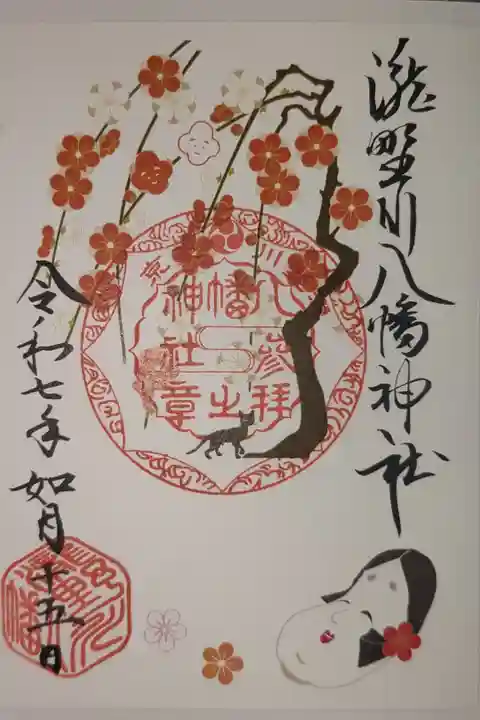 瀧野川八幡神社
八幡神社
参拝之章
令和七年 如月十五日